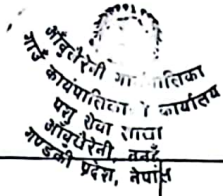 आँबुखैरेनी गाउँपालिका
गाउँ कार्यपालिका कार्यालय
पशु सेवा शाखा
आँबुखैरेनी, तनहुँ
गण्डकी प्रदेश, नेपाल